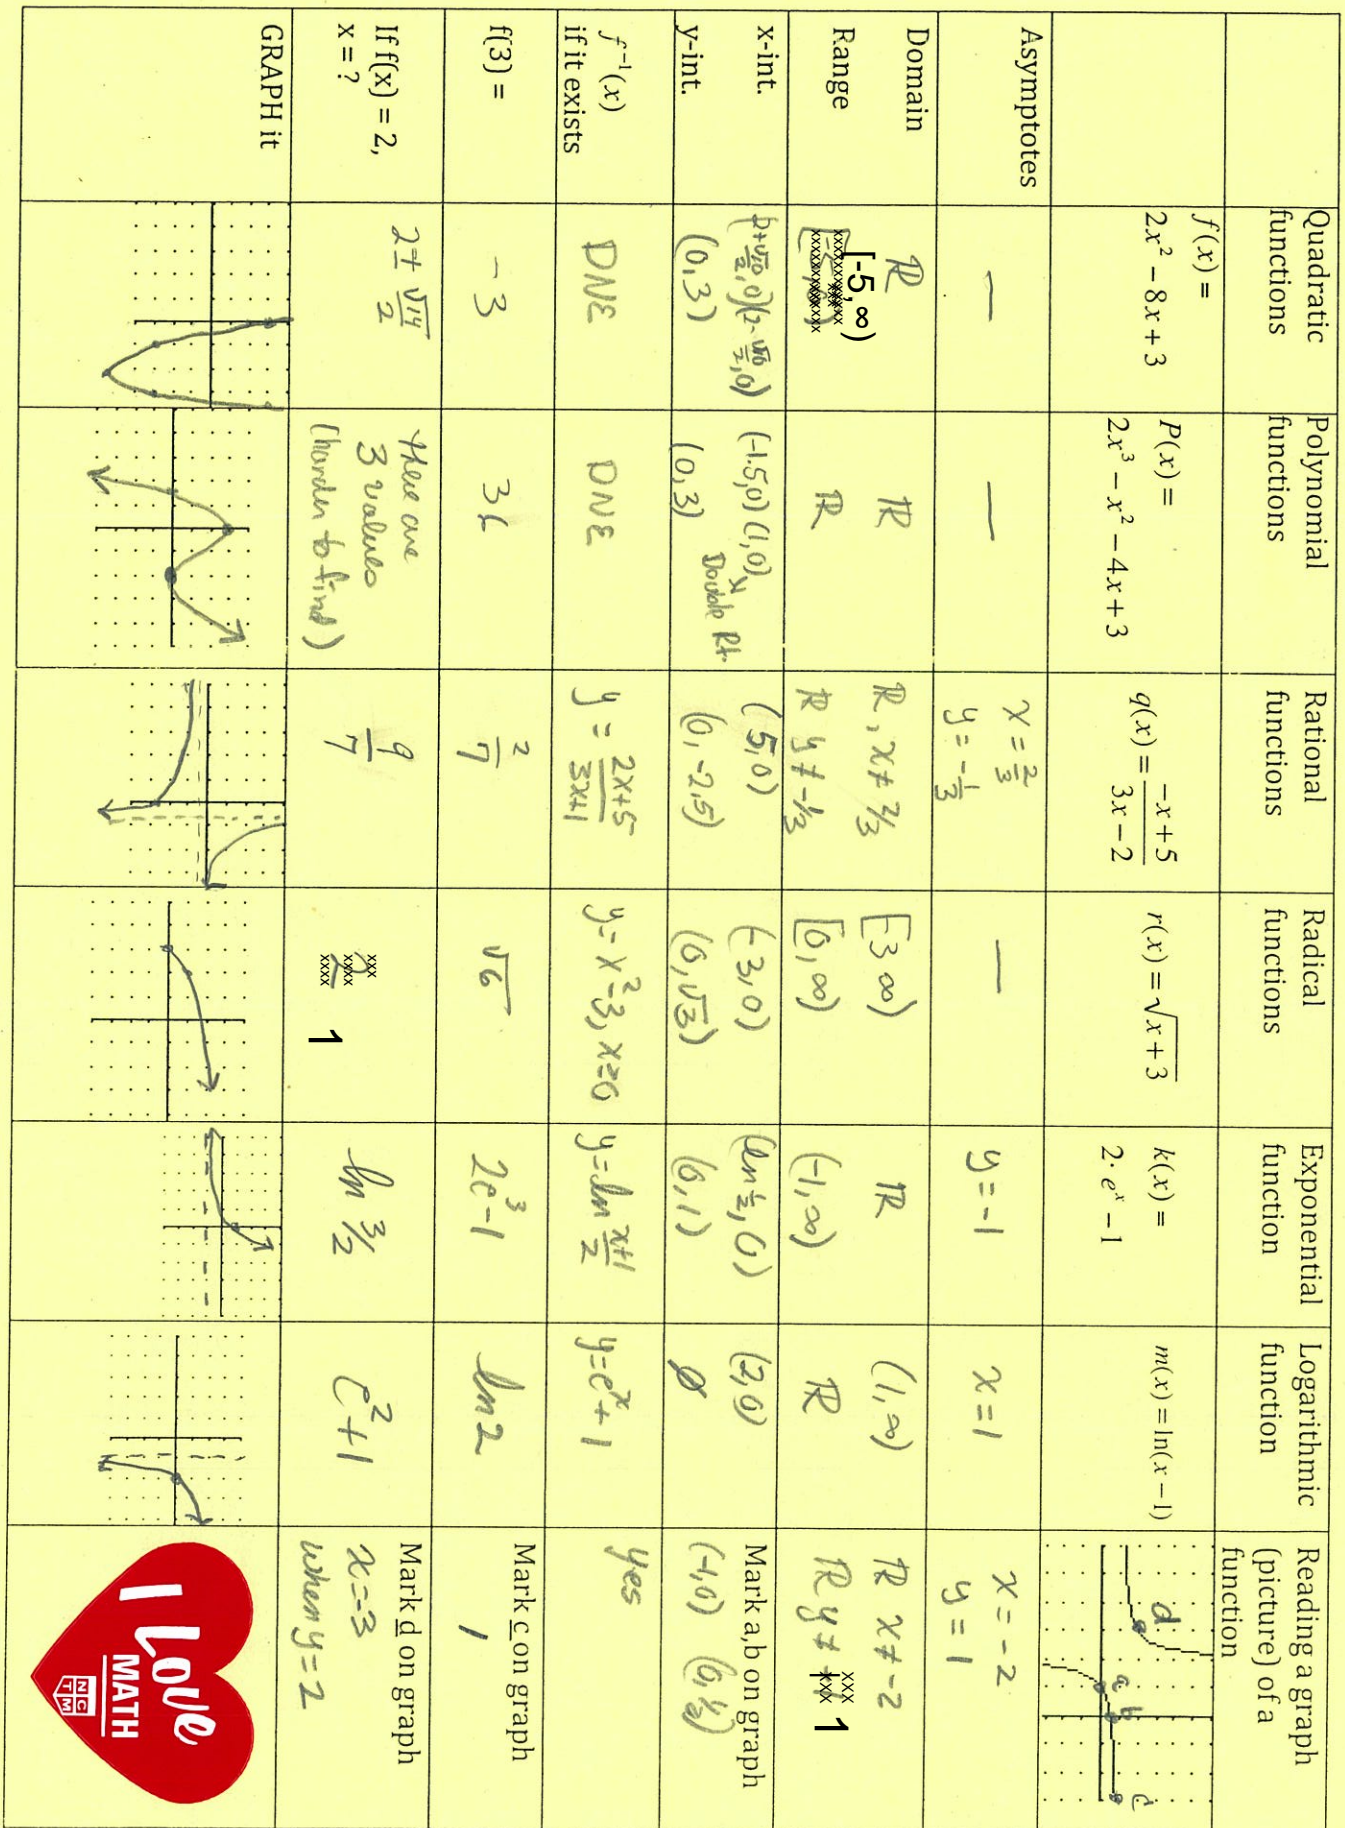 Quadratic functions
Polynomial functions
Rational functions
Radical functions
Exponential function
Logarithmic function
Reading a graph (picture) of a function
f(x) =
2x² − 8x + 3
P(x) =
2x³ − x² − 4x + 3
q(x) = (−x + 5)/(3x − 2)
r(x) = √(x + 3)
k(x) =
2· eˣ − 1
m(x) = ln(x − 1)
d
a
b
c
Asymptotes
—
—
x = 2/3
y = −1/3
—
y = −1
x = 1
x = −2
y = 1
Domain
Range
ℝ
[-5, ∞)
ℝ
ℝ
ℝ, x ≠ 2/3
ℝ y ≠ −1/3
[−3 ∞)
[0, ∞)
ℝ
(−1, ∞)
(1, ∞)
ℝ
ℝ x ≠ −2
ℝ y ≠ 1
x-int.
y-int.
(2+√10/2, 0) (2-√10/2, 0)
(0, 3)
(-1.5, 0) (1, 0)
Double Rt.
(0, 3)
(5, 0)
(0, -2.5)
(−3, 0)
(0, √3)
(ln ½, 0)
(0, 1)
(2, 0)
∅
Mark a,b on graph
(-1, 0) (0, ½)
f⁻¹(x)
if it exists
DNE
DNE
y = (2x+5)/(3x+1)
y = x² − 3, x≥0
y = ln (x+1)/2
y = eˣ + 1
yes
f(3) =
− 3
36
2/7
√6
2e³ − 1
ln 2
Mark c on graph
1
If f(x) = 2,
x = ?
2 ± √14/2
there are
3 values
(harder to find)
9/7
1
ln 3/2
e² + 1
Mark d on graph
x = −3
when y = 2
GRAPH it
I Love
MATH
NC
TM